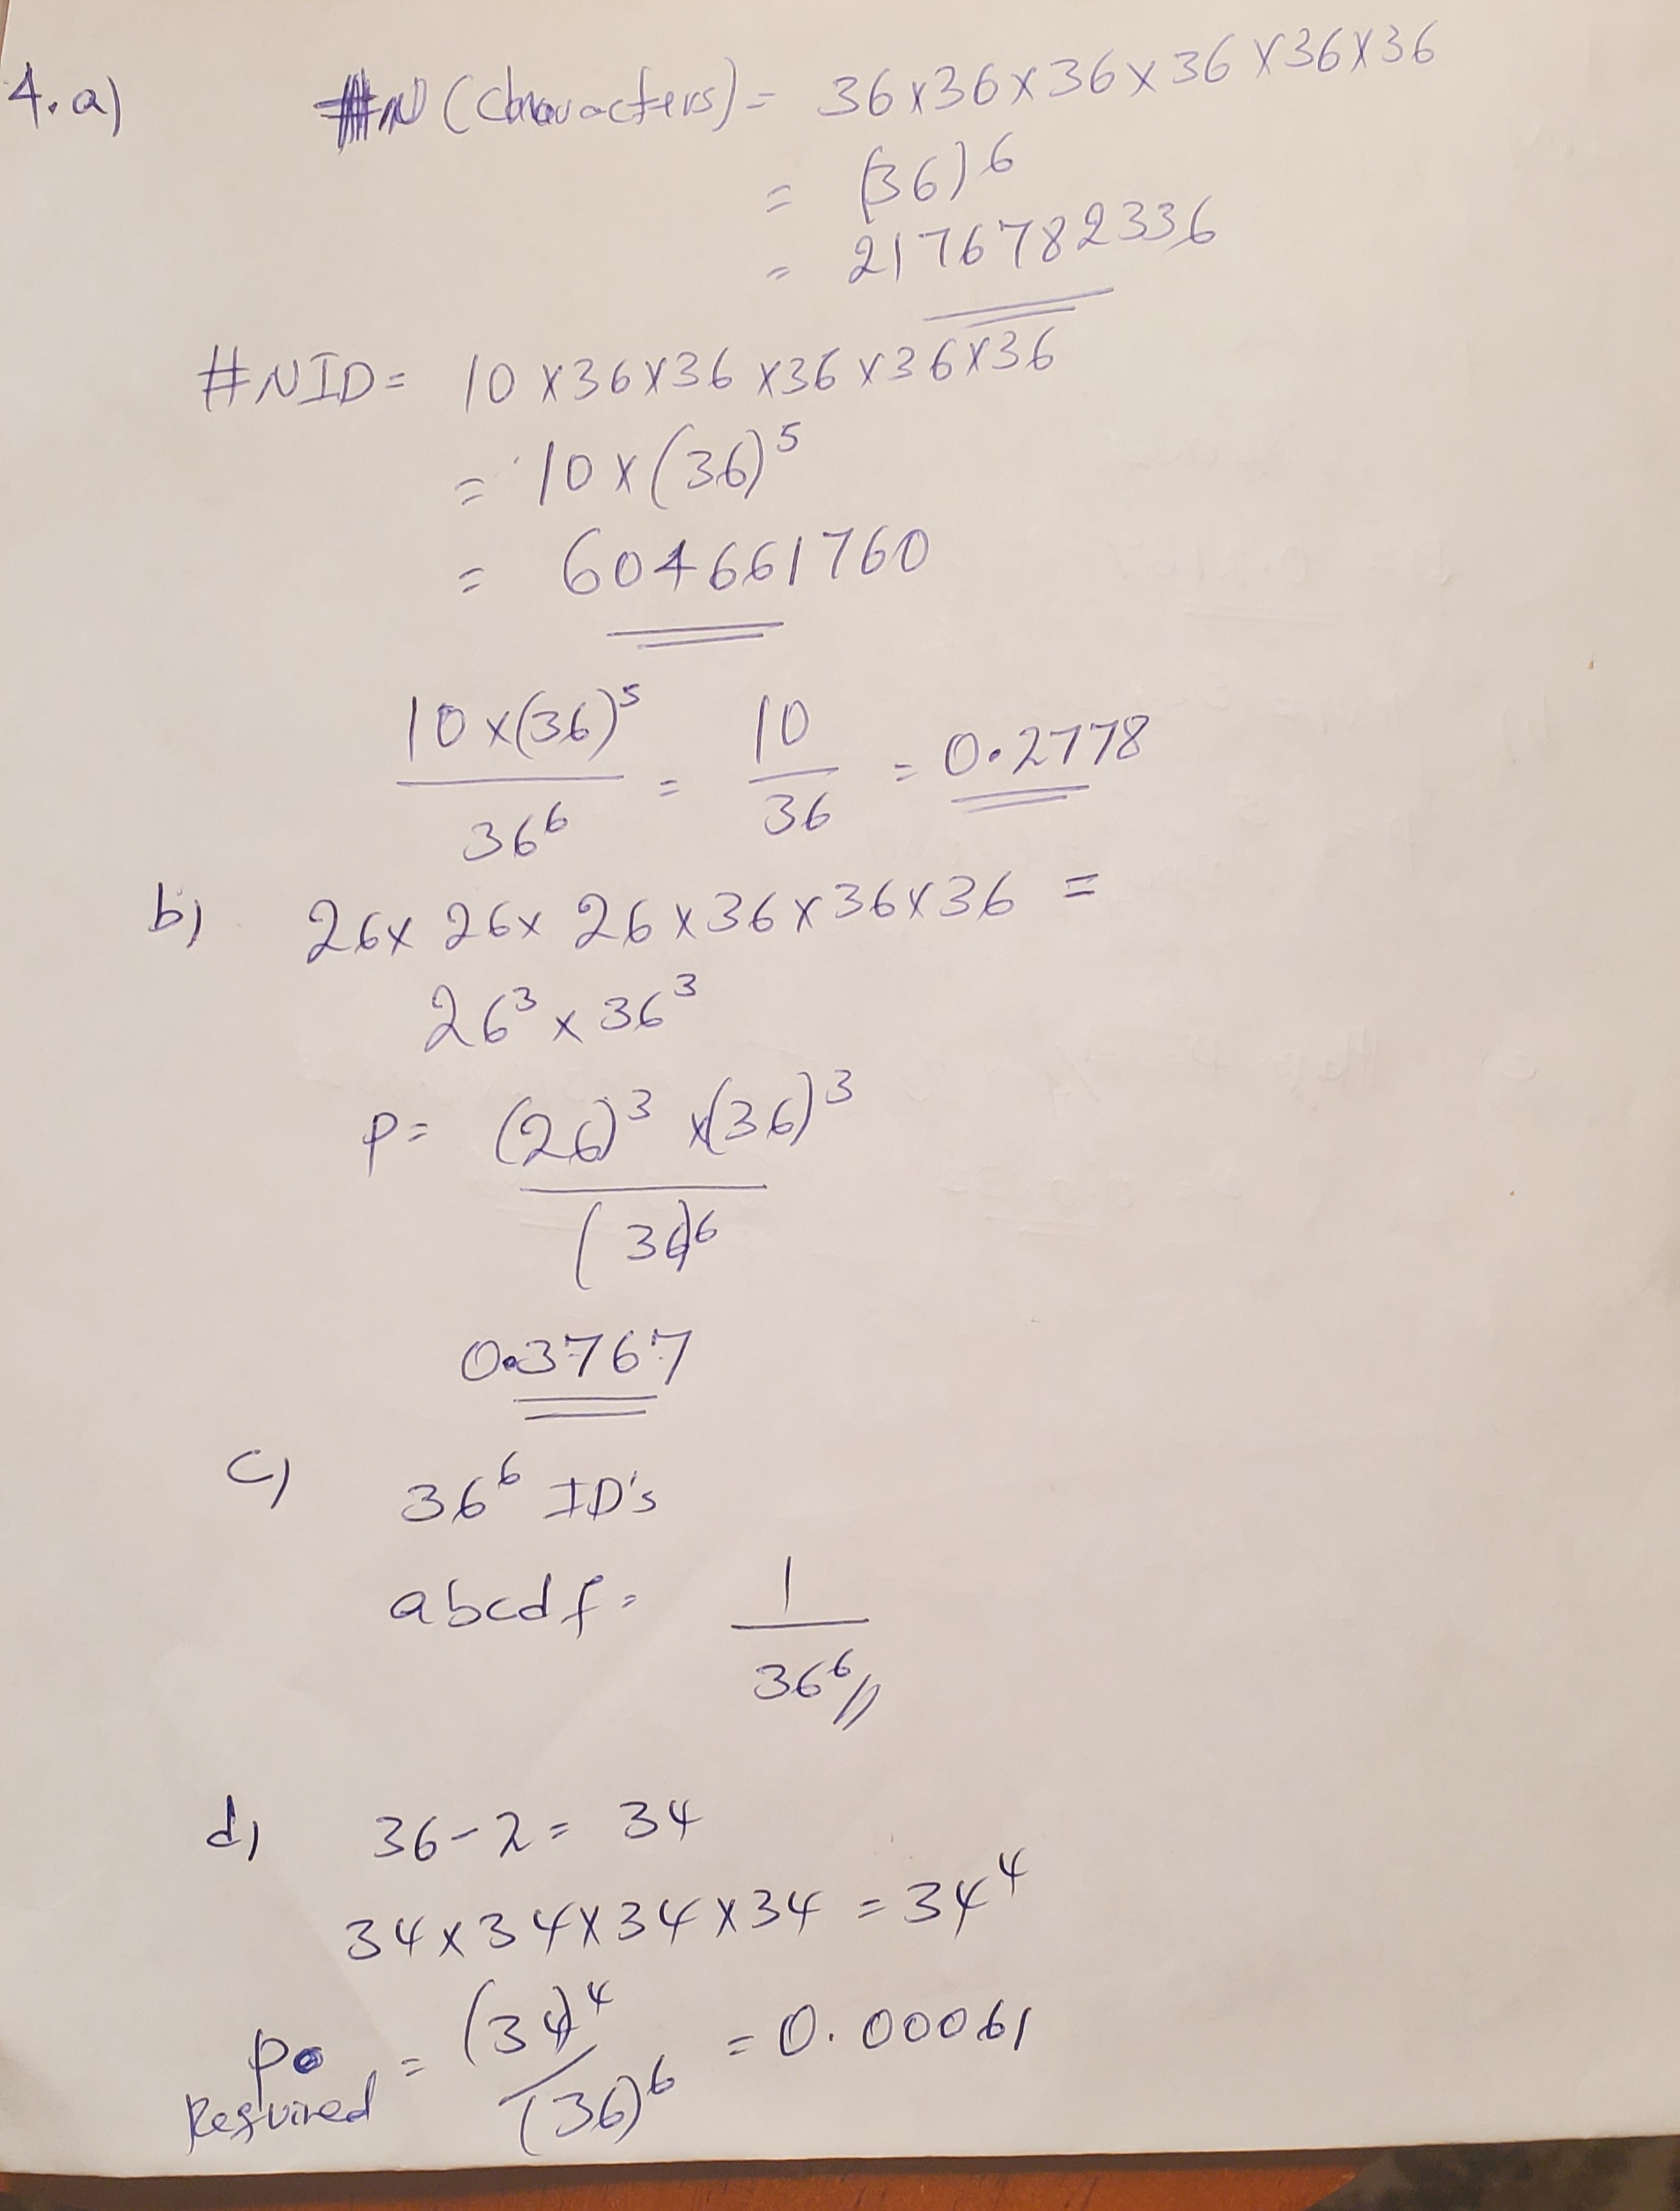 4. a) #N (Characters) = 36 x 36 x 36 x 36 x 36 x 36
= (36)⁶
= 2176782336
#NID = 10 x 36 x 36 x 36 x 36 x 36
= 10 x (36)⁵
= 604661760
10 x (36)⁵ / 36⁶ = 10 / 36 = 0.2778
b) 26 x 26 x 26 x 36 x 36 x 36 =
26³ x 36³
P = (26)³ x (36)³ / (36)⁶
0.3767
c) 36⁶ ID's
abcdf = 1 / 36⁶
d) 36 - 2 = 34
34 x 34 x 34 x 34 = 34⁴
P Required = (34)⁴ / (36)⁶ = 0.00061